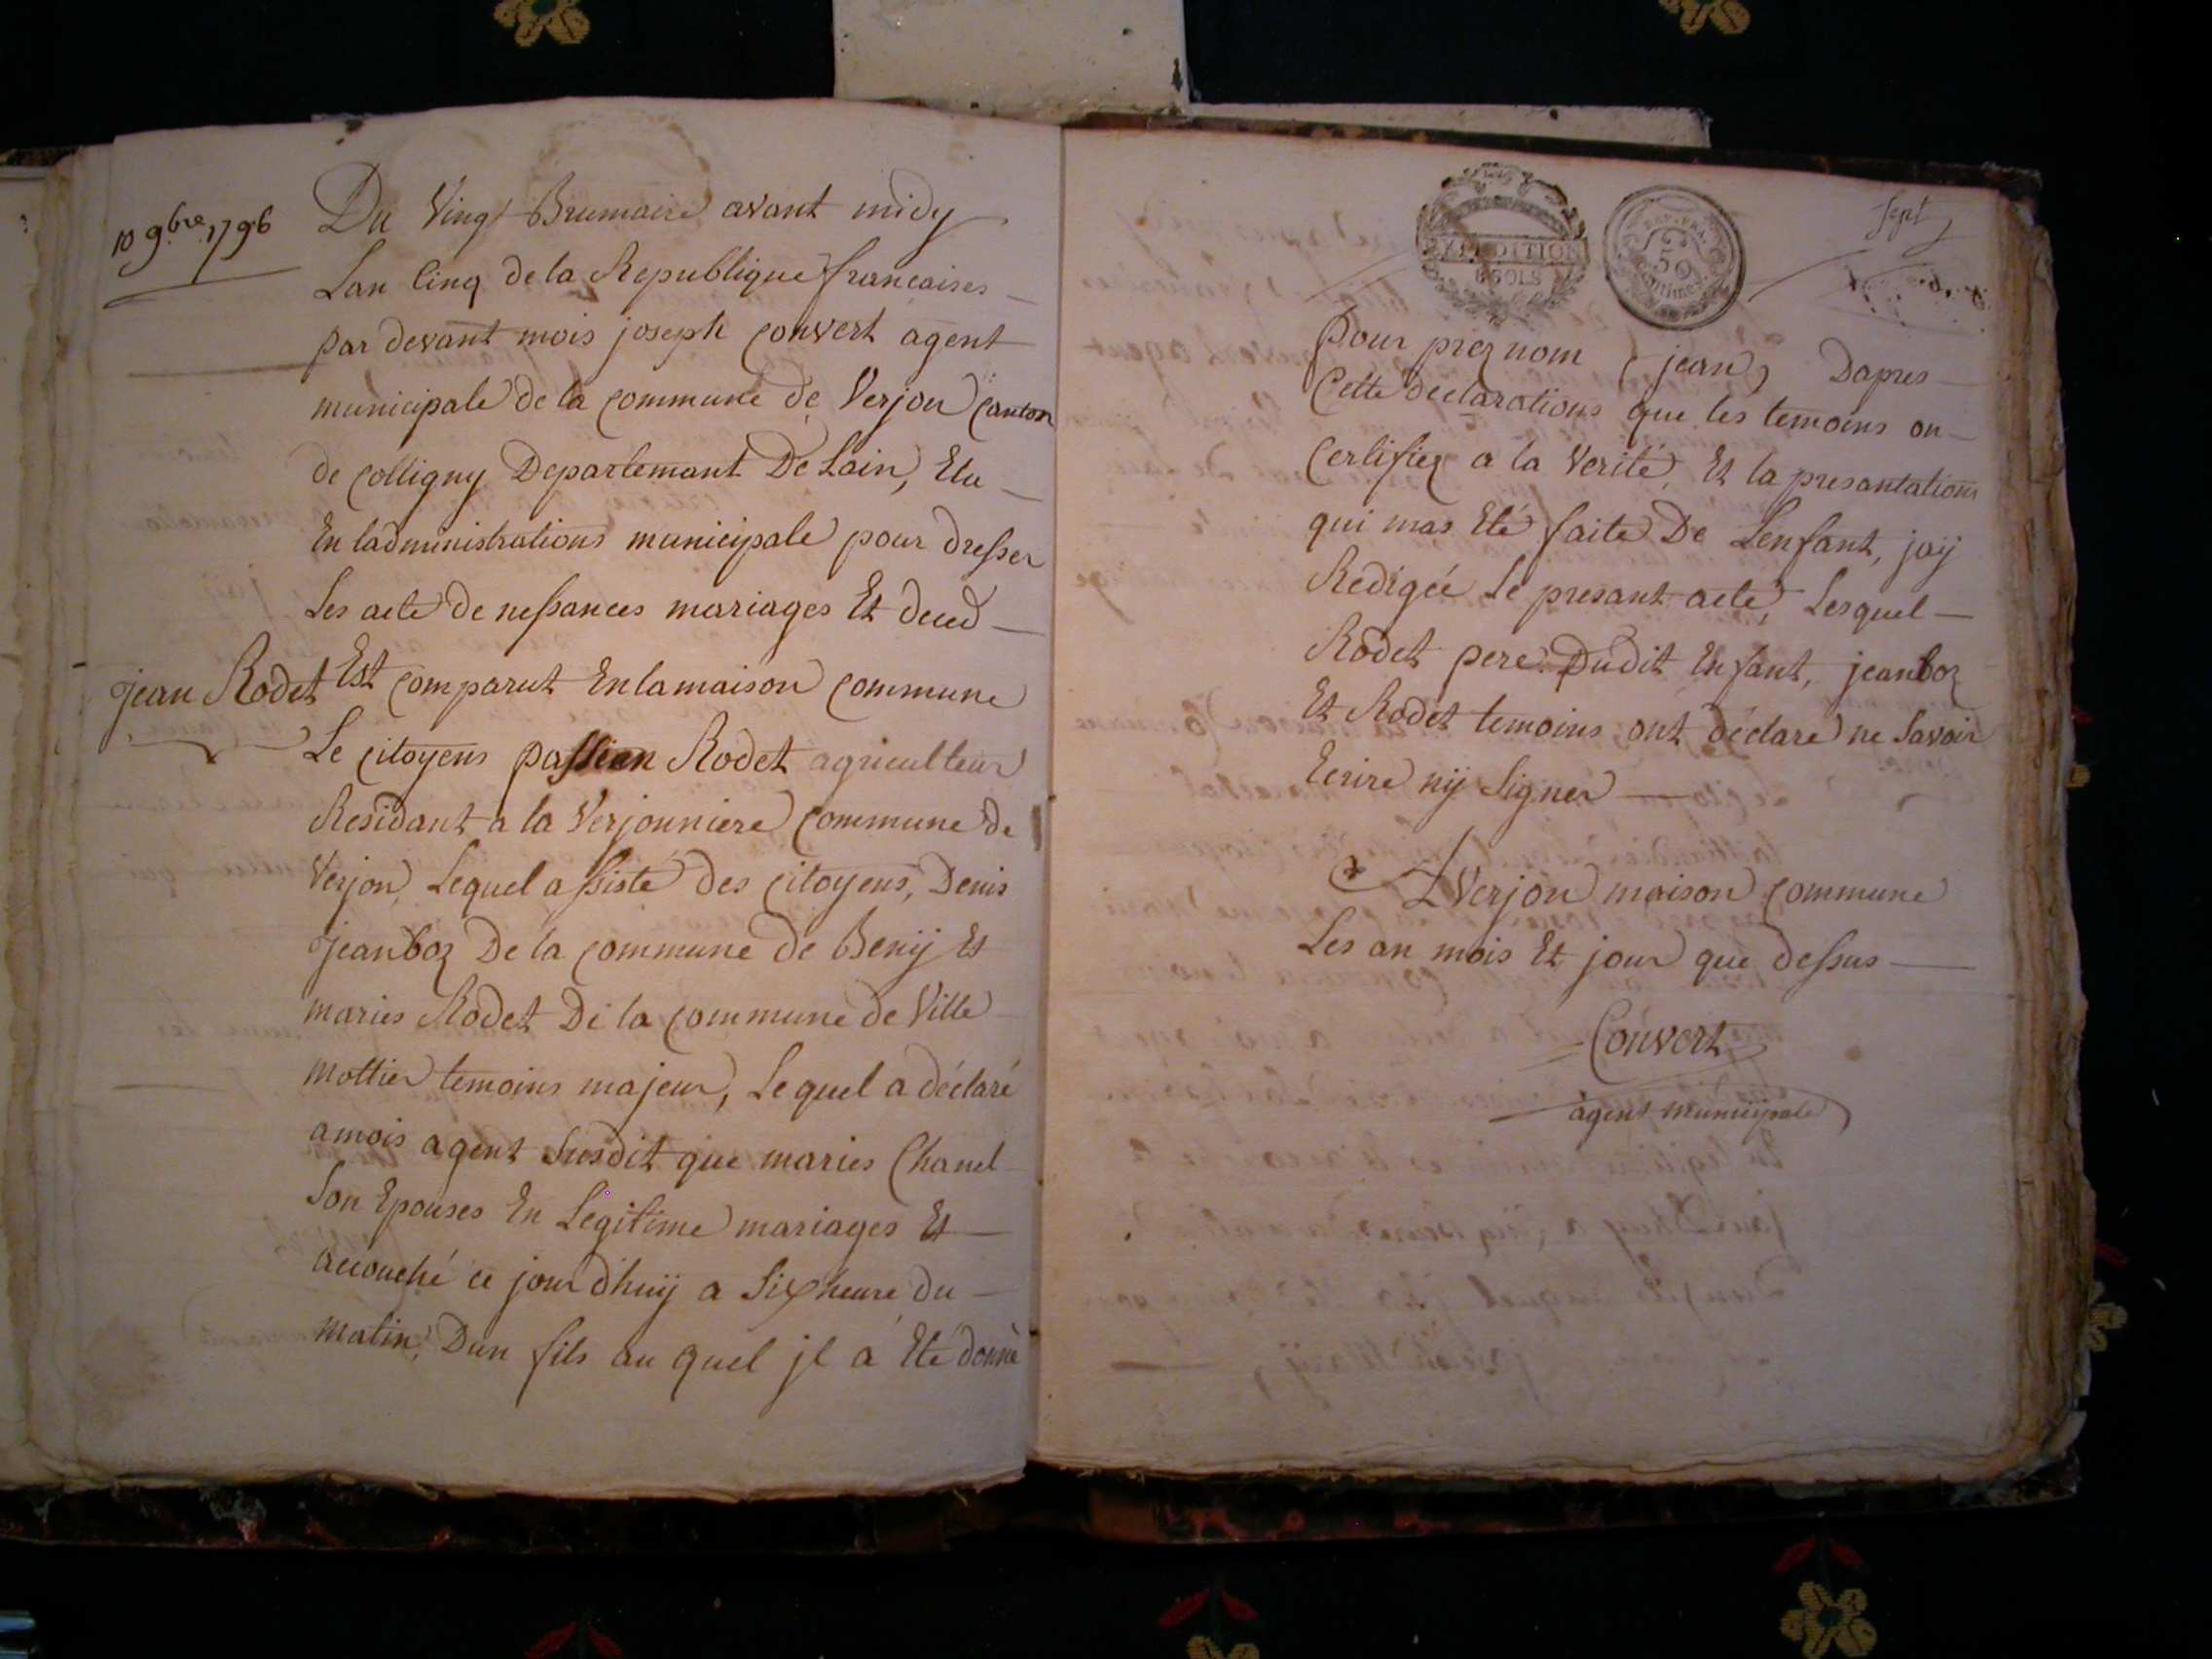 10 9bre 1796
Du Vingt Brumaire avant midy
Lan Cinq de la Republique francaises
par devant mois joseph Convert agent
municipale de la commune de Verjon Canton
de Colligny Departemant De Lain, Elu
En ladministrations municipale pour dresser
Les acte de nessances mariages Et deced
jean Rodet
Est comparut En la maison commune
Le citoyens passien Rodet agriculteur
Residant a la Verjonniere commune de
Verjon, Lequel assisté des citoyens, Denis
jeanboz De la commune de Benij Et
maries Rodet De la commune de Ville
mottier temoins majeur, Lequel a déclaré
amois agent Susdit que maries Chanel
Son Epouses En Legitime mariages Et
accouché ce jour dhuij a Six heure du
matin, Dun fils au quel jl à Eté donné
EXPEDITION
6 SOLS
REP. FRA.
50
centimes
Sept
pour preznom (jean) Dapres
Cette declarations que les temoins on
Certifiez a la Verité, Et la presantations
qui mas Eté faite De Lenfant, jaij
Redigéé Le presant acte, Lesquel
Rodet pere Dudit Enfant, jeanboz
Et Rodet temoins ont déclaré ne Savoir
Ecrire nij Signer
a Verjon maison commune
Les an mois Et jour que dessus
Convert
agent municipale